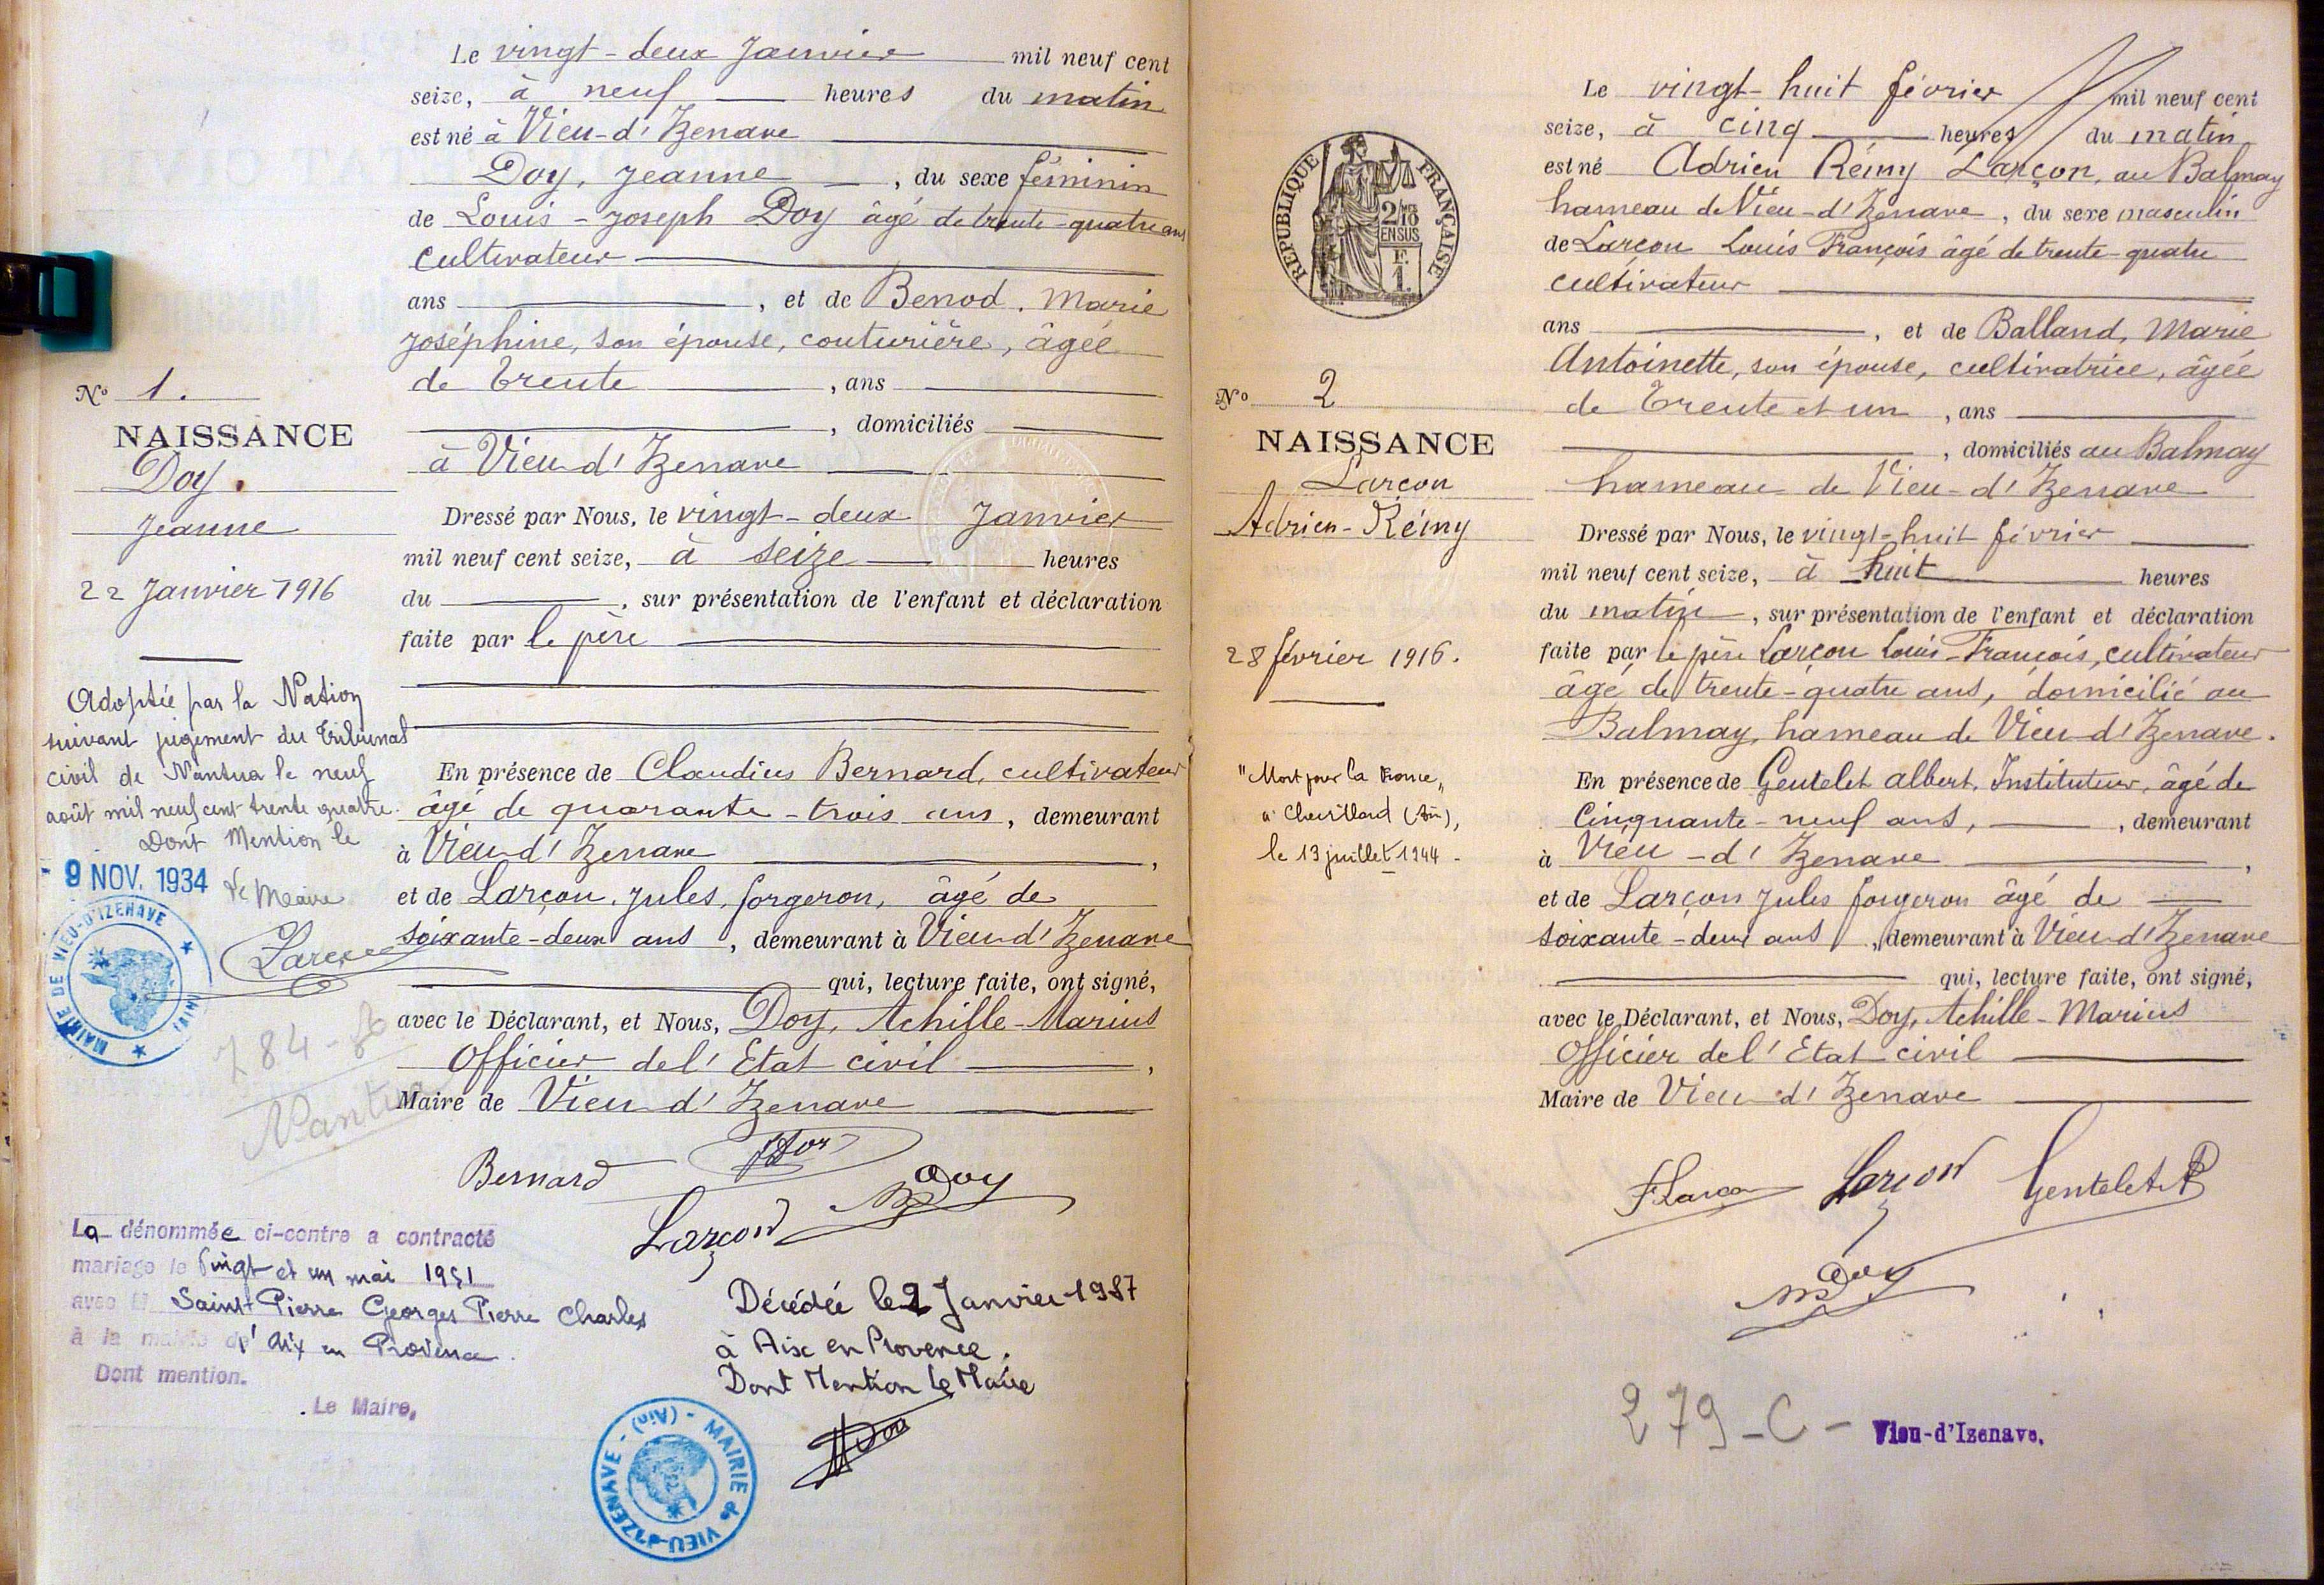 Le vingt-deux Janvier mil neuf cent
seize, à neuf heures du matin
est né à Vieu-d'Izenave
Doy, Jeanne, du sexe féminin
de Louis-Joseph Doy âgé de trente-quatre ans
cultivateur
ans, et de Benod, Marie
Joséphine, son épouse, couturière, âgée
de trente, ans
, domiciliés
à Vieu d'Izenave
Dressé par Nous, le vingt-deux Janvier
mil neuf cent seize, à seize heures
du, sur présentation de l'enfant et déclaration
faite par le père
En présence de Claudius Bernard, cultivateur
âgé de quarante-trois ans, demeurant
à Vieu d'Izenave,
et de Larçon, Jules, forgeron, âgé de
soixante-deux ans, demeurant à Vieu d'Izenave
qui, lecture faite, ont signé,
avec le Déclarant, et Nous, Doy, Achille-Marius
Officier de l'Etat civil,
Maire de Vieu d'Izenave
Bernard
Doy
Larçon
No 1.
NAISSANCE
Doy.
Jeanne
22 Janvier 1916
Adoptée par la Nation
suivant jugement du Tribunal
civil de Nantua le neuf
août mil neuf cent trente quatre.
Dont Mention le
9 NOV. 1934
Le Maire
Larçon
MAIRIE DE VIEU-D'IZENAVE (AIN)
784
Nantua
La dénommée ci-contre a contracté
mariage le vingt et un mai 1951
avec Saint-Pierre Georges Pierre Charles
à la mairie d'Aix en Provence.
Dont mention.
Le Maire,
Décédée le 2 Janvier 1987
à Aix en Provence.
Dont Mention Le Maire
MAIRIE de VIEU-d'IZENAVE - (Ain) -
Le vingt-huit février mil neuf cent
seize, à cinq heures du matin
est né Adrien Rémy Larçon, au Balmay
hameau de Vieu-d'Izenave, du sexe masculin
de Larçon Louis François âgé de trente-quatre
cultivateur
ans, et de Balland, Marie
Antoinette, son épouse, cultivatrice, âgée
de trente et un, ans
, domiciliés au Balmay
hameau de Vieu-d'Izenave
Dressé par Nous, le vingt-huit février
mil neuf cent seize, à huit heures
du matin, sur présentation de l'enfant et déclaration
faite par le père Larçon Louis-François, cultivateur
âgé de trente-quatre ans, domicilié au
Balmay, hameau de Vieu d'Izenave.
En présence de Gentelet Albert, Instituteur, âgé de
cinquante-neuf ans, demeurant
à Vieu-d'Izenave,
et de Larçon Jules forgeron âgé de
soixante-deux ans, demeurant à Vieu d'Izenave
qui, lecture faite, ont signé,
avec le Déclarant, et Nous, Doy, Achille-Marius
Officier de l'Etat civil
Maire de Vieu d'Izenave
F Larçon Larçon Gentelet A
Doy
REPUBLIQUE FRANÇAISE
2/10
EN SUS
F.
1.
No 2
NAISSANCE
Larçon
Adrien-Rémy
28 février 1916.
"Mort pour la France"
à Chevillard (Ain),
le 13 juillet 1944
279-C-
Vieu-d'Izenave.